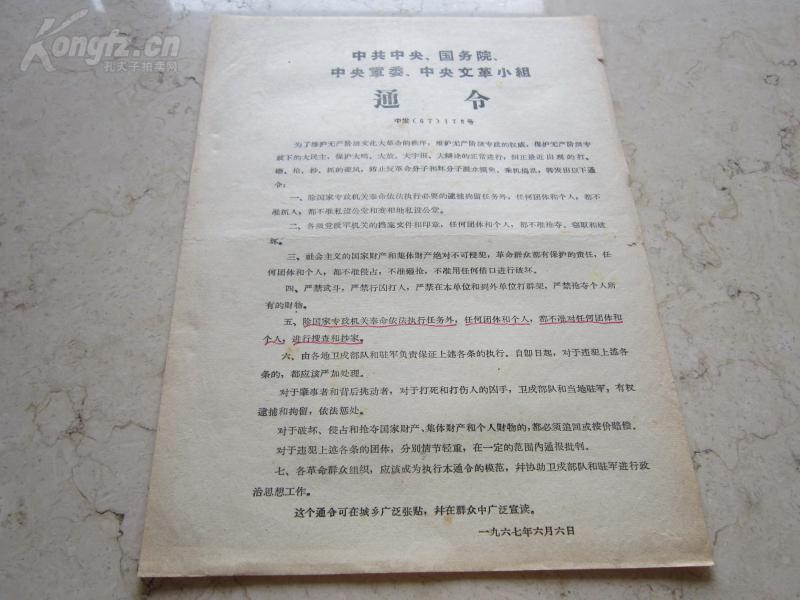 Kongfz.cn
孔夫子拍卖网
中共中央、国务院、
中央軍委、中央文革小組
通 令
中发(67)178号
为了维护无产阶级文化大革命的秩序，维护无产阶级专政的权威，保护无产阶级专
政下的大民主，保护大鸣、大放、大字报、大辩论的正常进行，纠正最近出现的打、
砸、抢、抄、抓的歪风，防止反革命分子和坏分子混水摸鱼、乘机捣乱，特发出以下通
令：
一、除国家专政机关奉命依法执行必要的逮捕拘留任务外，任何团体和个人，都不
准抓人，都不准私设公堂和变相地私设公堂。
二、各级党政军机关的档案文件和印章，任何团体和个人，都不准抢夺、窃取和破
坏。
三、社会主义的国家财产和集体财产绝对不可侵犯，革命群众都有保护的责任，任
何团体和个人，都不准侵占，不准砸抢，不准用任何借口进行破坏。
四、严禁武斗，严禁行凶打人，严禁在本单位和到外单位打群架，严禁抢夺个人所
有的财物。
五、除国家专政机关奉命依法执行任务外，任何团体和个人，都不准对任何团体和
个人，进行搜查和抄家。
六、由各地卫戍部队和驻军负责保证上述各条的执行。自卽日起，对于违犯上述各
条的，都应该严加处理。
对于肇事者和背后挑动者，对于打死和打伤人的凶手，卫戍部队和当地驻军，有权
逮捕和拘留，依法惩处。
对于破坏、侵占和抢夺国家财产、集体财产和个人财物的，都必须追回或按价赔偿。
对于违犯上述各条的团体，分别情节轻重，在一定的范围内通报批判。
七、各革命群众组织，应该成为执行本通令的模范，幷协助卫戍部队和驻军进行政
治思想工作。
这个通令可在城乡广泛张贴，幷在群众中广泛宣读。
一九六七年六月六日